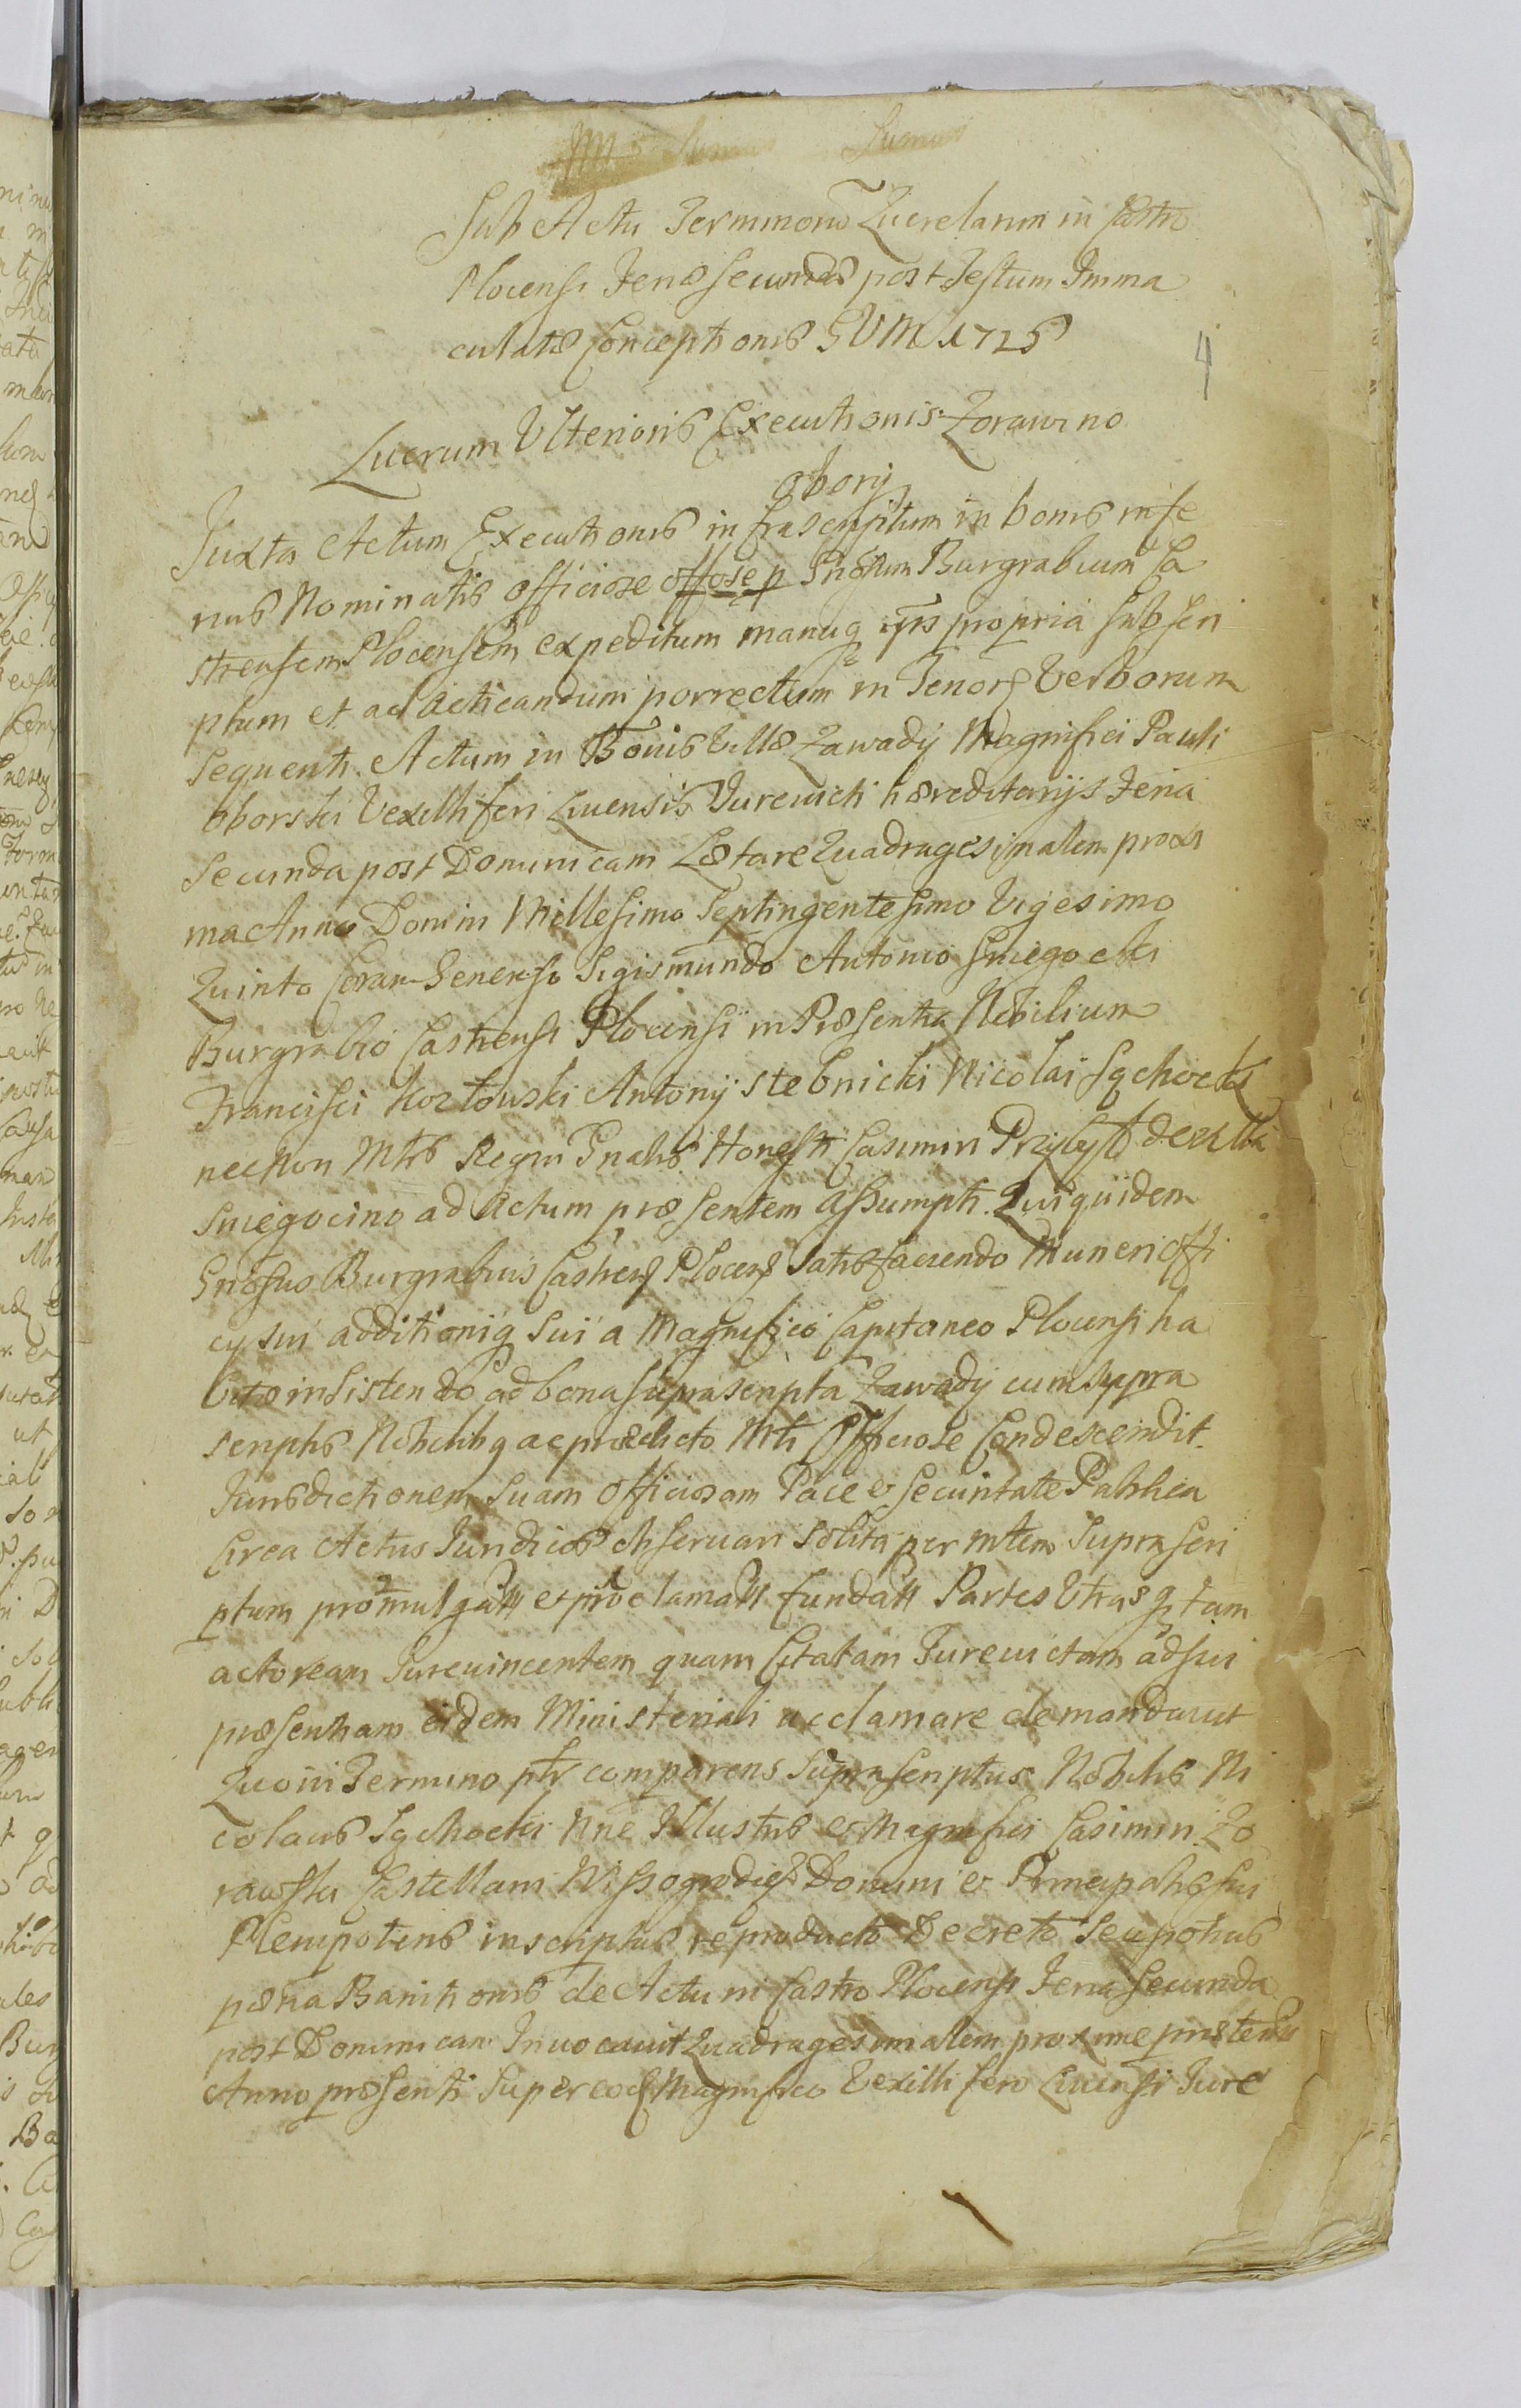 Sumus
Sub Actu Terminorũ Querelarum in Castro
Plocensi Feriæ secundæ post Festum Imma
culatæ Conceptionis BVM 1725
4
Lucrum Ulterioris Executionis Zorawino
oborij
Juxta Actum Executionis infrascriptum in bonis infe
rius Nominatis officiose offose p Gnosum Burgrabium Ca
strensem Plocensem expeditum manuq ejus propria subscri
ptum et ad acticandum porrectum in Tenorē Verborum
sequenti. Actum in Bonis Villæ Zawady Magnifici Pauli
Oborski Vexilliferi Livensis Jurevicti hæreditarijs Feria
secunda post Dominicam Lætare Quadragesimalem proxi
ma Anno Domini Millesimo Septingentesimo Vigesimo
Quinto Coram Generoso Sigismundo Antonio Smiegocki
Burgrabio Castrensi Plocensi in Præsentia Nobilium
Francisci Kozłowski Antonij Stebnicki Nicolai Sąchocki
necnon Mtris Regni Gnalis Honesti Casimiri Przybysz de villa
Smiegocino ad Actum præsentem assumpti. Qui quidem
Gnosus Burgrabius Castreñ Ploceñ Satisfaciendo Muneri offi
cij sui additioniq sui a Magnifico Capitaneo Plocensi ha
bitæ insistendo ad bona suprascripta Zawady cum supra
scriptis Nobilibq ac prædicto Mtri Officiose Condescendit.
Jurisdictionem Suam Officiosam Pace et securitate Publica
circa Actus Juridicos observari solita per Mtem Suprascri
ptum promulgatā et proclamatā fundatā Partes Utrasq tam
actoream Jurevincentem quam Citatam Jurevictam ad sui
præsentiam eidem Ministeriali acclamare demandavit
Quo in Termino pltr comparens Suprascriptus Nobilis Ni
colaus Sąchocki Nne Illustris et Magnifici Casimiri Zo
rawski Castellani Wissogrodieñ Domini et Principalis sui
Plenipotens inscriptus reproducto Decreto seu potius
pœna Banitionis de Actu in Castro Plocensi Feria Secunda
post Dominicam Invocavit Quadragesimalem proxime præterita
Anno præsenti Super eodē Magnifico Vexillifero Livensi Jure